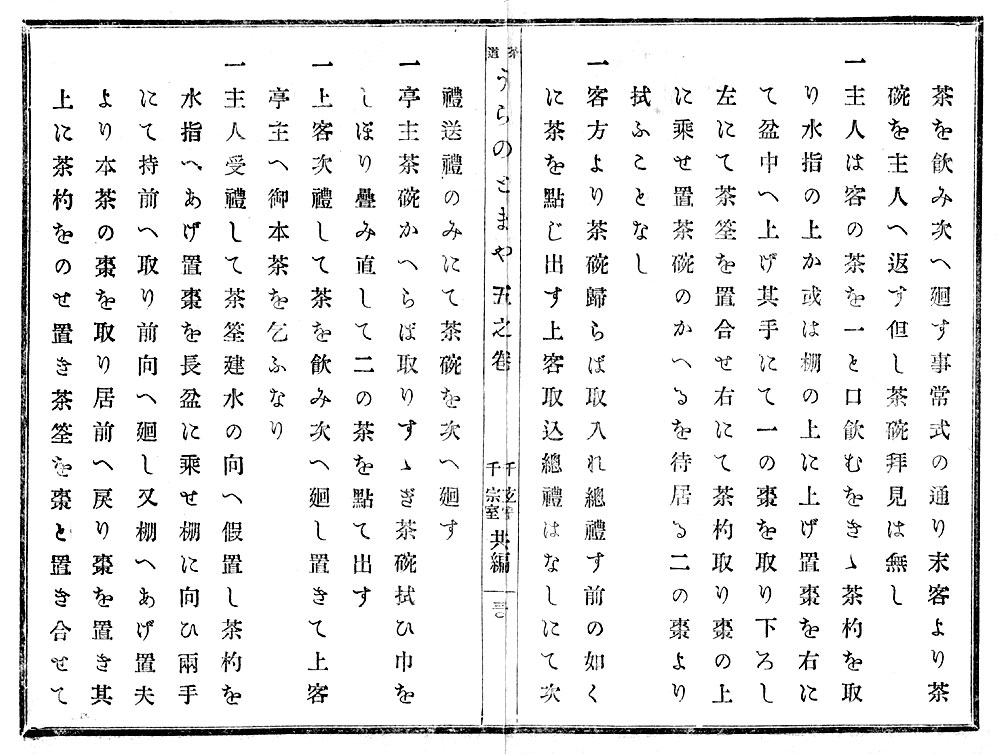 茶を飮み次へ廻す事常式の通り末客より茶
碗を主人へ返す但し茶碗拜見は無し
一主人は客の茶を一と口飮むをきゝ茶杓を取
り水指の上か或は棚の上に上げ置棗を右に
て盆中へ上げ其手にて一の棗を取り下ろし
左にて茶筌を置合せ右にて茶杓取り棗の上
に乘せ置茶碗のかへるを待居る二の棗より
拭ふことなし
一客方より茶碗歸らば取入れ總禮す前の如く
に茶を點じ出す上客取込總禮はなしにて次
茶道 うらのとまや 五之卷 千玄室 千宗室 共編 三〇
禮送禮のみにて茶碗を次へ廻す
一亭主茶碗かへらば取りすゝぎ茶碗拭ひ巾を
しぼり疊み直して二の茶を點て出す
一上客次禮して茶を飮み次へ廻し置きて上客
亭主へ御本茶を乞ふなり
一主人受禮して茶筌建水の向へ假置し茶杓を
水指へあげ置棗を長盆に乘せ棚に向ひ兩手
にて持前へ取り前向へ廻し又棚へあげ置夫
より本茶の棗を取り居前へ戻り棗を置き其
上に茶杓をのせ置き茶筌を棗と置き合せて